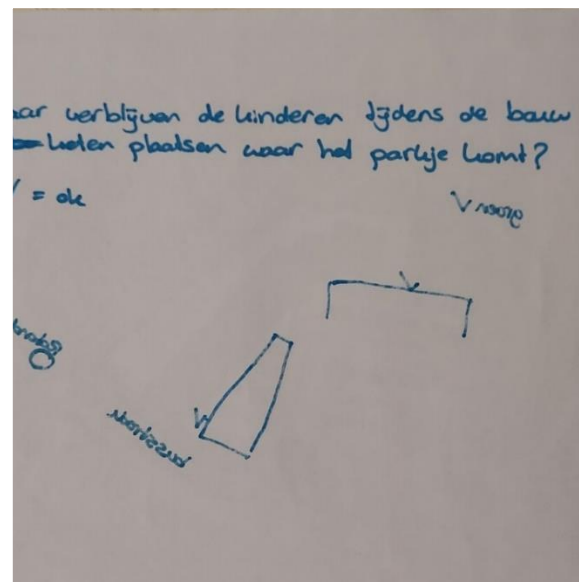 ar verblijven de kinderen tijdens de bouw
keten plaatsen waar het parkje komt?
V = ok
V groen